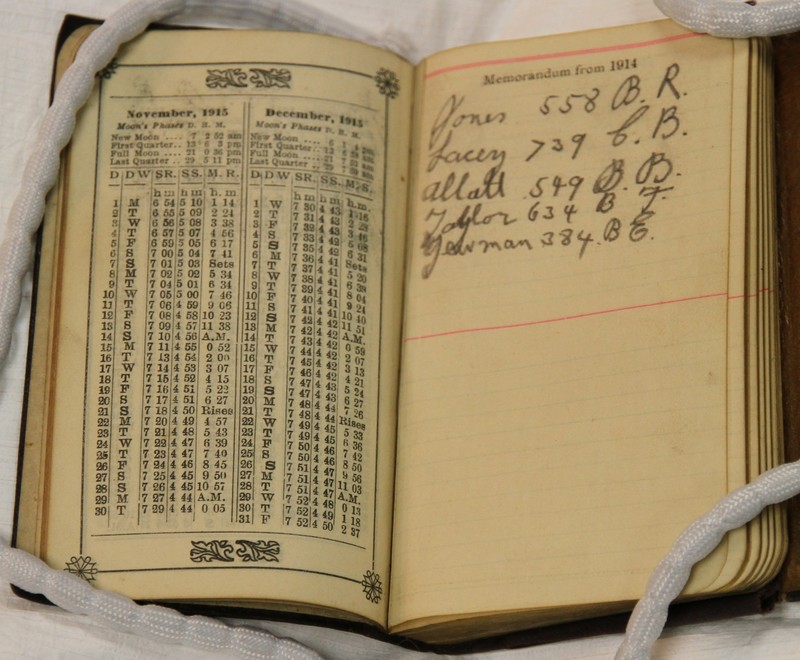 November, 1915
Moon's Phases D. H. M.
New Moon .... 7 2 52 am
First Quarter.. 13 6 3 pm
Full Moon .... 21 0 36 pm
Last Quarter .. 29 5 11 pm
D D W SR. SS. M. R.
h m h m h. m.
1 M 6 54 5 10 1 14
2 T 6 55 5 09 2 24
3 W 6 56 5 08 3 38
4 T 6 57 5 07 4 56
5 F 6 59 5 05 6 17
6 S 7 00 5 04 7 41
7 S 7 01 5 03 Sets
8 M 7 02 5 02 5 34
9 T 7 04 5 01 6 34
10 W 7 05 5 00 7 46
11 T 7 06 4 59 9 06
12 F 7 08 4 58 10 23
13 S 7 09 4 57 11 38
14 S 7 10 4 56 A.M.
15 M 7 11 4 55 0 52
16 T 7 13 4 54 2 00
17 W 7 14 4 53 3 07
18 T 7 15 4 52 4 15
19 F 7 16 4 51 5 22
20 S 7 17 4 51 6 27
21 S 7 18 4 50 Rises
22 M 7 20 4 49 4 57
23 T 7 21 4 48 5 43
24 W 7 22 4 47 6 39
25 T 7 23 4 47 7 40
26 F 7 24 4 46 8 45
27 S 7 25 4 45 9 50
28 S 7 26 4 45 10 57
29 M 7 27 4 44 A.M.
30 T 7 29 4 44 0 05
December, 1915
Moon's Phases D. H. M.
New Moon ....
First Quarter..
Full Moon ....
Last Quarter ..
D D W SR. SS. M. S.
h m h m h. m.
1 W 7 30 4 43 1 16
2 T 7 31 4 43 2 28
3 F 7 32 4 43 3 46
4 S 7 33 4 42 5 08
5 S 7 35 4 42 6 31
6 M 7 36 4 41 Sets
7 T 7 37 4 41 5 20
8 W 7 38 4 41 6 39
9 T 7 39 4 41 8 04
10 F 7 40 4 41 9 24
11 S 7 41 4 41 10 40
12 S 7 41 4 42 11 51
13 M 7 42 4 42 A.M.
14 T 7 43 4 42 0 59
15 W 7 44 4 42 2 07
16 T 7 45 4 42 3 13
17 F 7 46 4 42 4 21
18 S 7 46 4 43 5 24
19 S 7 47 4 43 6 27
20 M 7 48 4 44 7 26
21 T 7 48 4 44 Rises
22 W 7 49 4 45 5 33
23 T 7 49 4 45 6 36
24 F 7 50 4 46 7 42
25 S 7 50 4 46 8 50
26 S 7 51 4 46 9 56
27 M 7 51 4 47 11 03
28 T 7 51 4 47 A.M.
29 W 7 52 4 48 0 13
30 T 7 52 4 49 1 18
31 F 7 52 4 50 2 37
Memorandum from 1914
Jones 558 B. R.
Lacey 739 C. B.
Allatt 549 B. B.
Taylor 634 B T.
Yewman 384. B E.